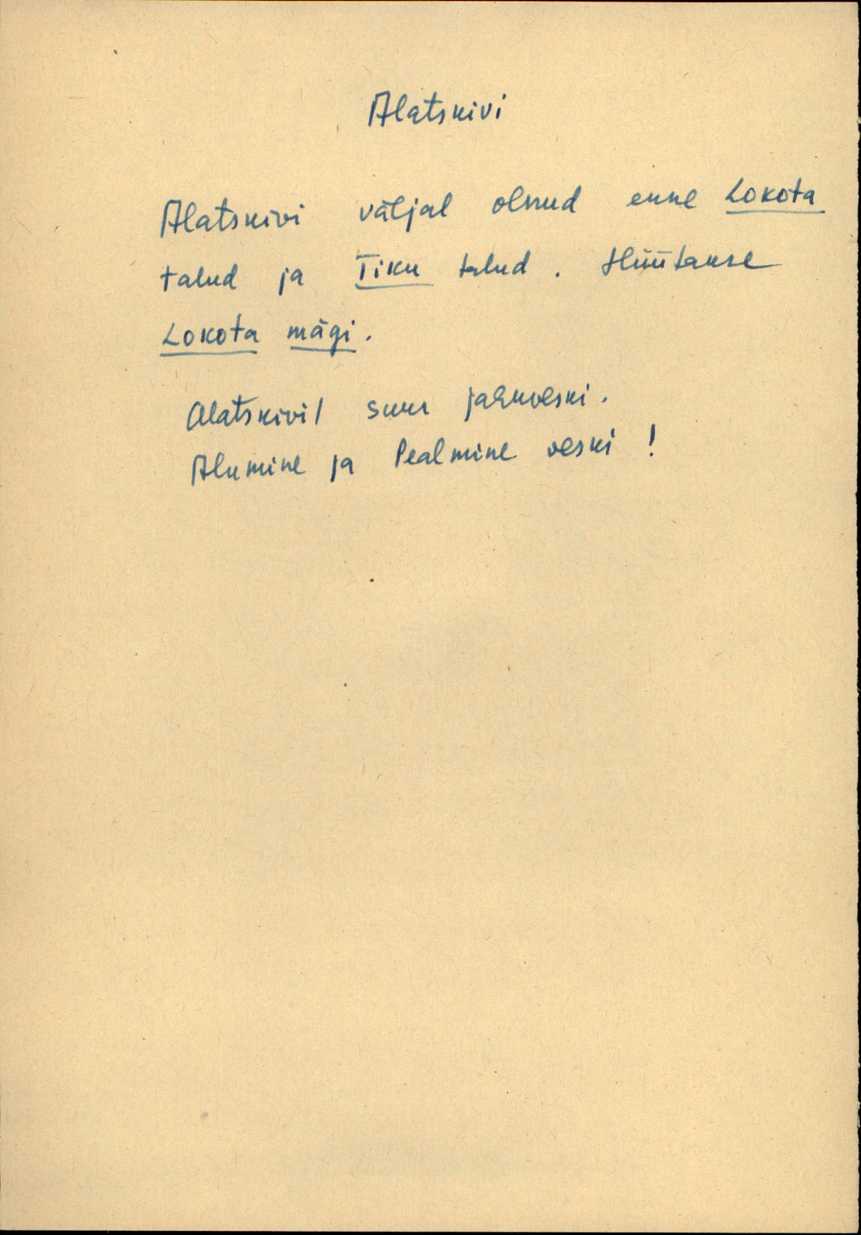 Alatskivi
Alatskivi väljal olnud enne Lokota
talud ja Tiku talud. Hüütakse
Lokota mägi.
Alatskivil suur jahuveski.
Alumine ja Pealmine veski!